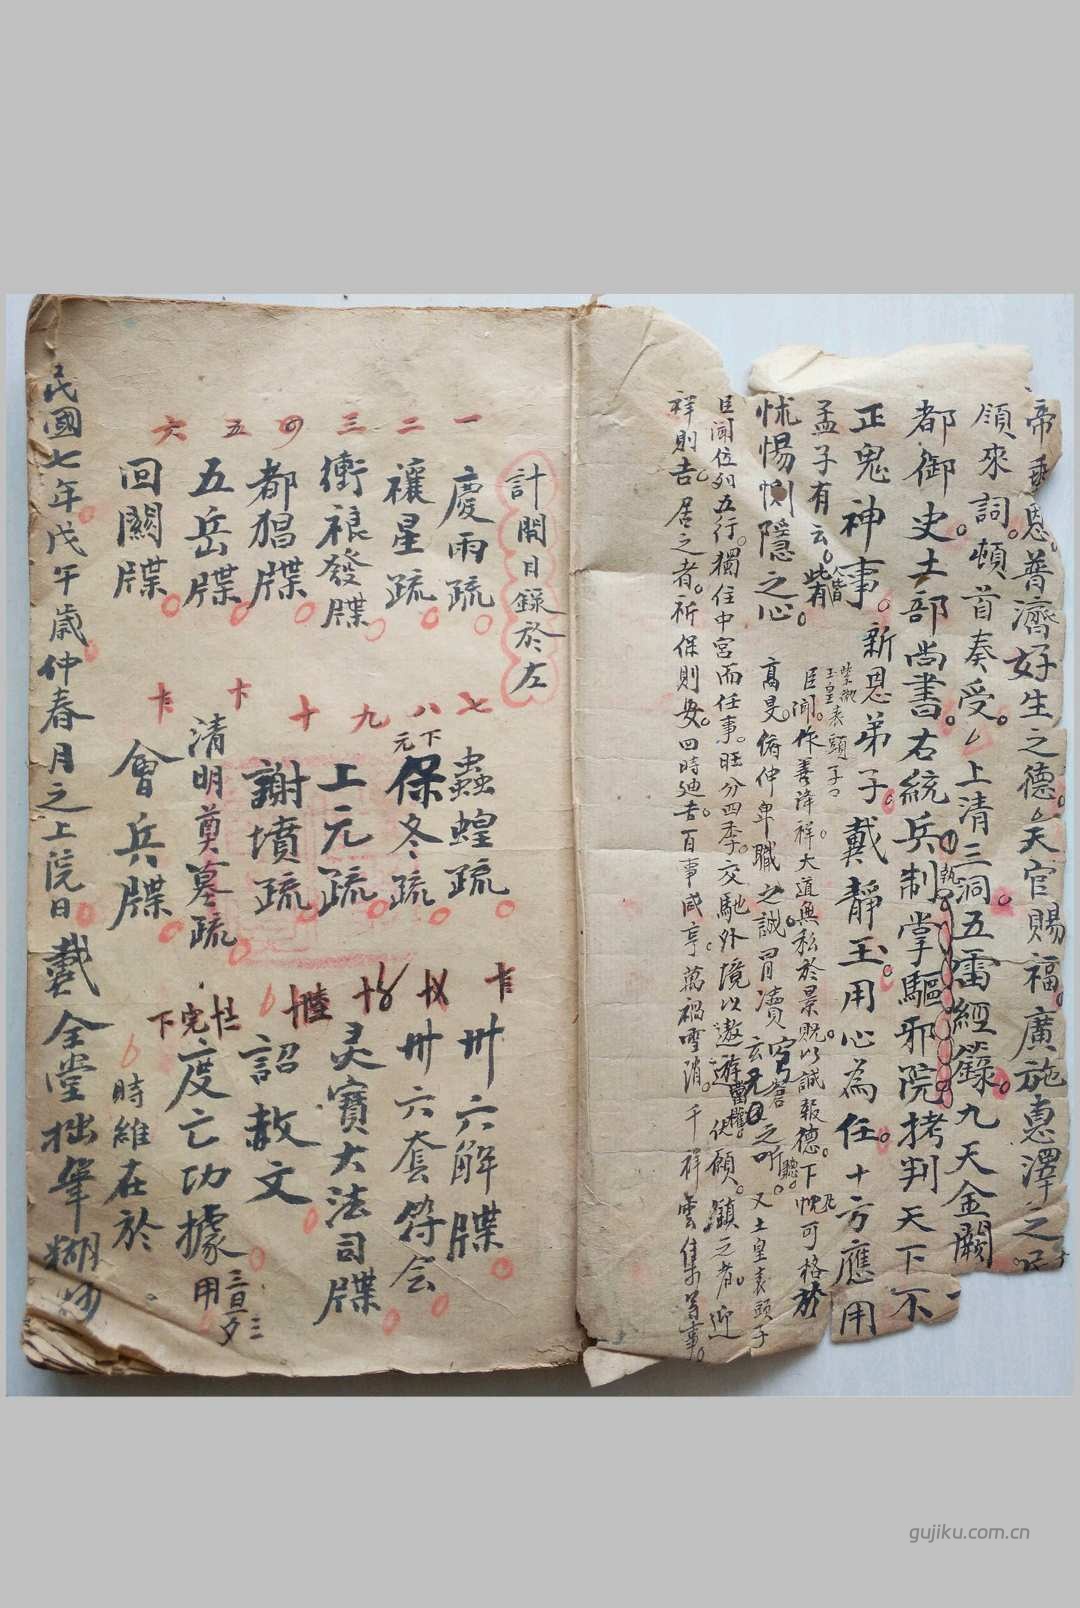 帝垂恩普濟好生之德天官賜福廣施惠澤之
領來詞頓首奏受上清三洞五雷經籙九天金闕
執
都御史土部尚書右統兵制掌驅邪院拷判天下不
正鬼神事新恩弟子戴靜玉用心為任十方應用
孟子有云皆有
怵惕惻隱之心
玉皇表頭子
臣聞作善降祥大道無私於景貺以誠報德下忱可格於
高旻俯伸卑職之誠冒瀆玄之听又土皇表頭子
臣聞位列五行獨住中宮而任事旺分四季交馳外境以遨遊但願鎮之者迎
祥則吉居之者祈保則安四時迪吉百事咸亨萬禍雪消千祥雲集等事
計開目錄於左
一 慶雨疏
二 禳星疏
三 衝禓發牒
四 都猖牒
五 五岳牒
六 回關牒
七 蟲蝗疏
八 下元保冬疏
九 上元疏
十 謝墳疏
清明奠墓疏
會兵牒
卅六解牒
卅六套符命
灵寶大法司牒
詔赦文
度亡功據
三旦夕用
時維在於
民國七年戊午歲仲春月之上院日戴全堂拙筆糊抄
gujiku.com.cn